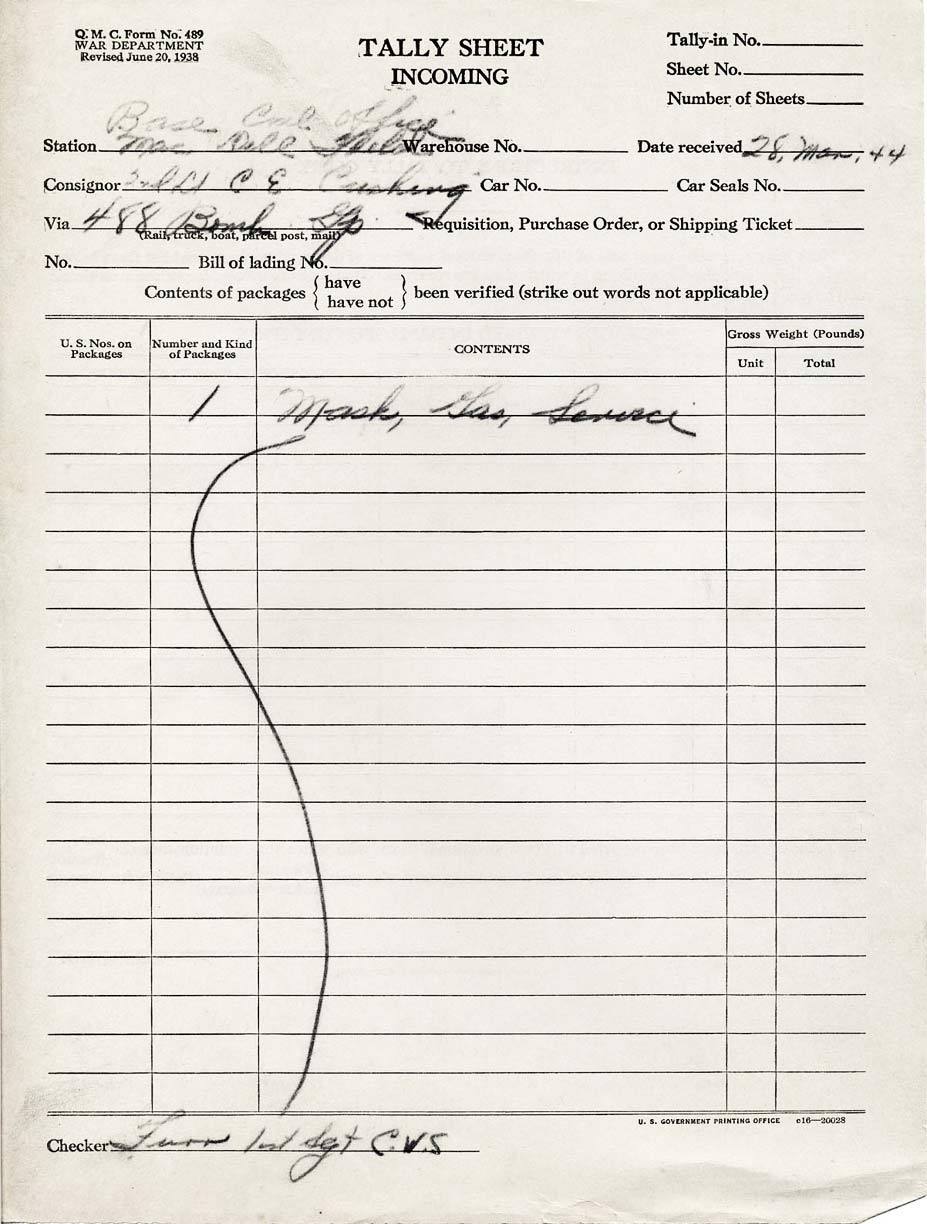 Q. M. C. Form No. 489
WAR DEPARTMENT
Revised June 20, 1938
TALLY SHEET
INCOMING
Tally-in No.
Sheet No.
Number of Sheets
Base Cml Office
Station Mac Dill Field Warehouse No. Date received 28, Mar, 44
Consignor 2nd Lt C E Cushing Car No. Car Seals No.
Via 488 Bomb Gp Requisition, Purchase Order, or Shipping Ticket
(Rail, truck, boat, parcel post, mail)
No. Bill of lading No.
Contents of packages { have have not } been verified (strike out words not applicable)
U. S. Nos. on Packages Number and Kind of Packages CONTENTS Gross Weight (Pounds)
Unit Total
1 Mask, Gas, Service
U. S. GOVERNMENT PRINTING OFFICE c16—20028
Checker Furr 1st Sgt C.W.S